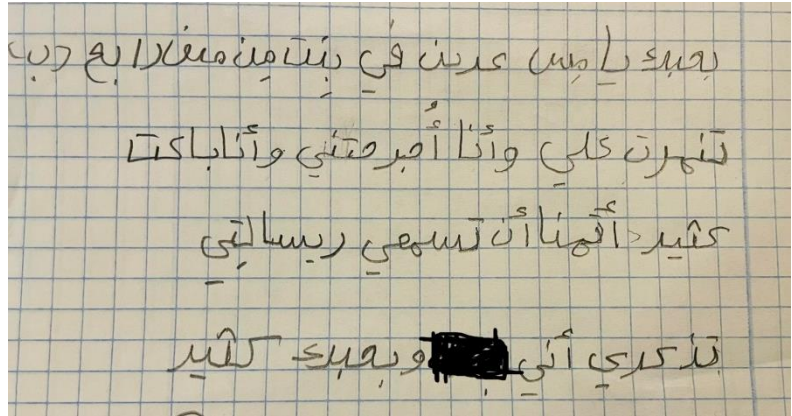 بحبك يا مس عرين في بنت من صف رابع (ب)
تنمرت علي وأنا أُجرحتني وأنا باكت
كثير أتمنا أن تسمعي ريسالتِي
تذكري أني وبحبك كثير